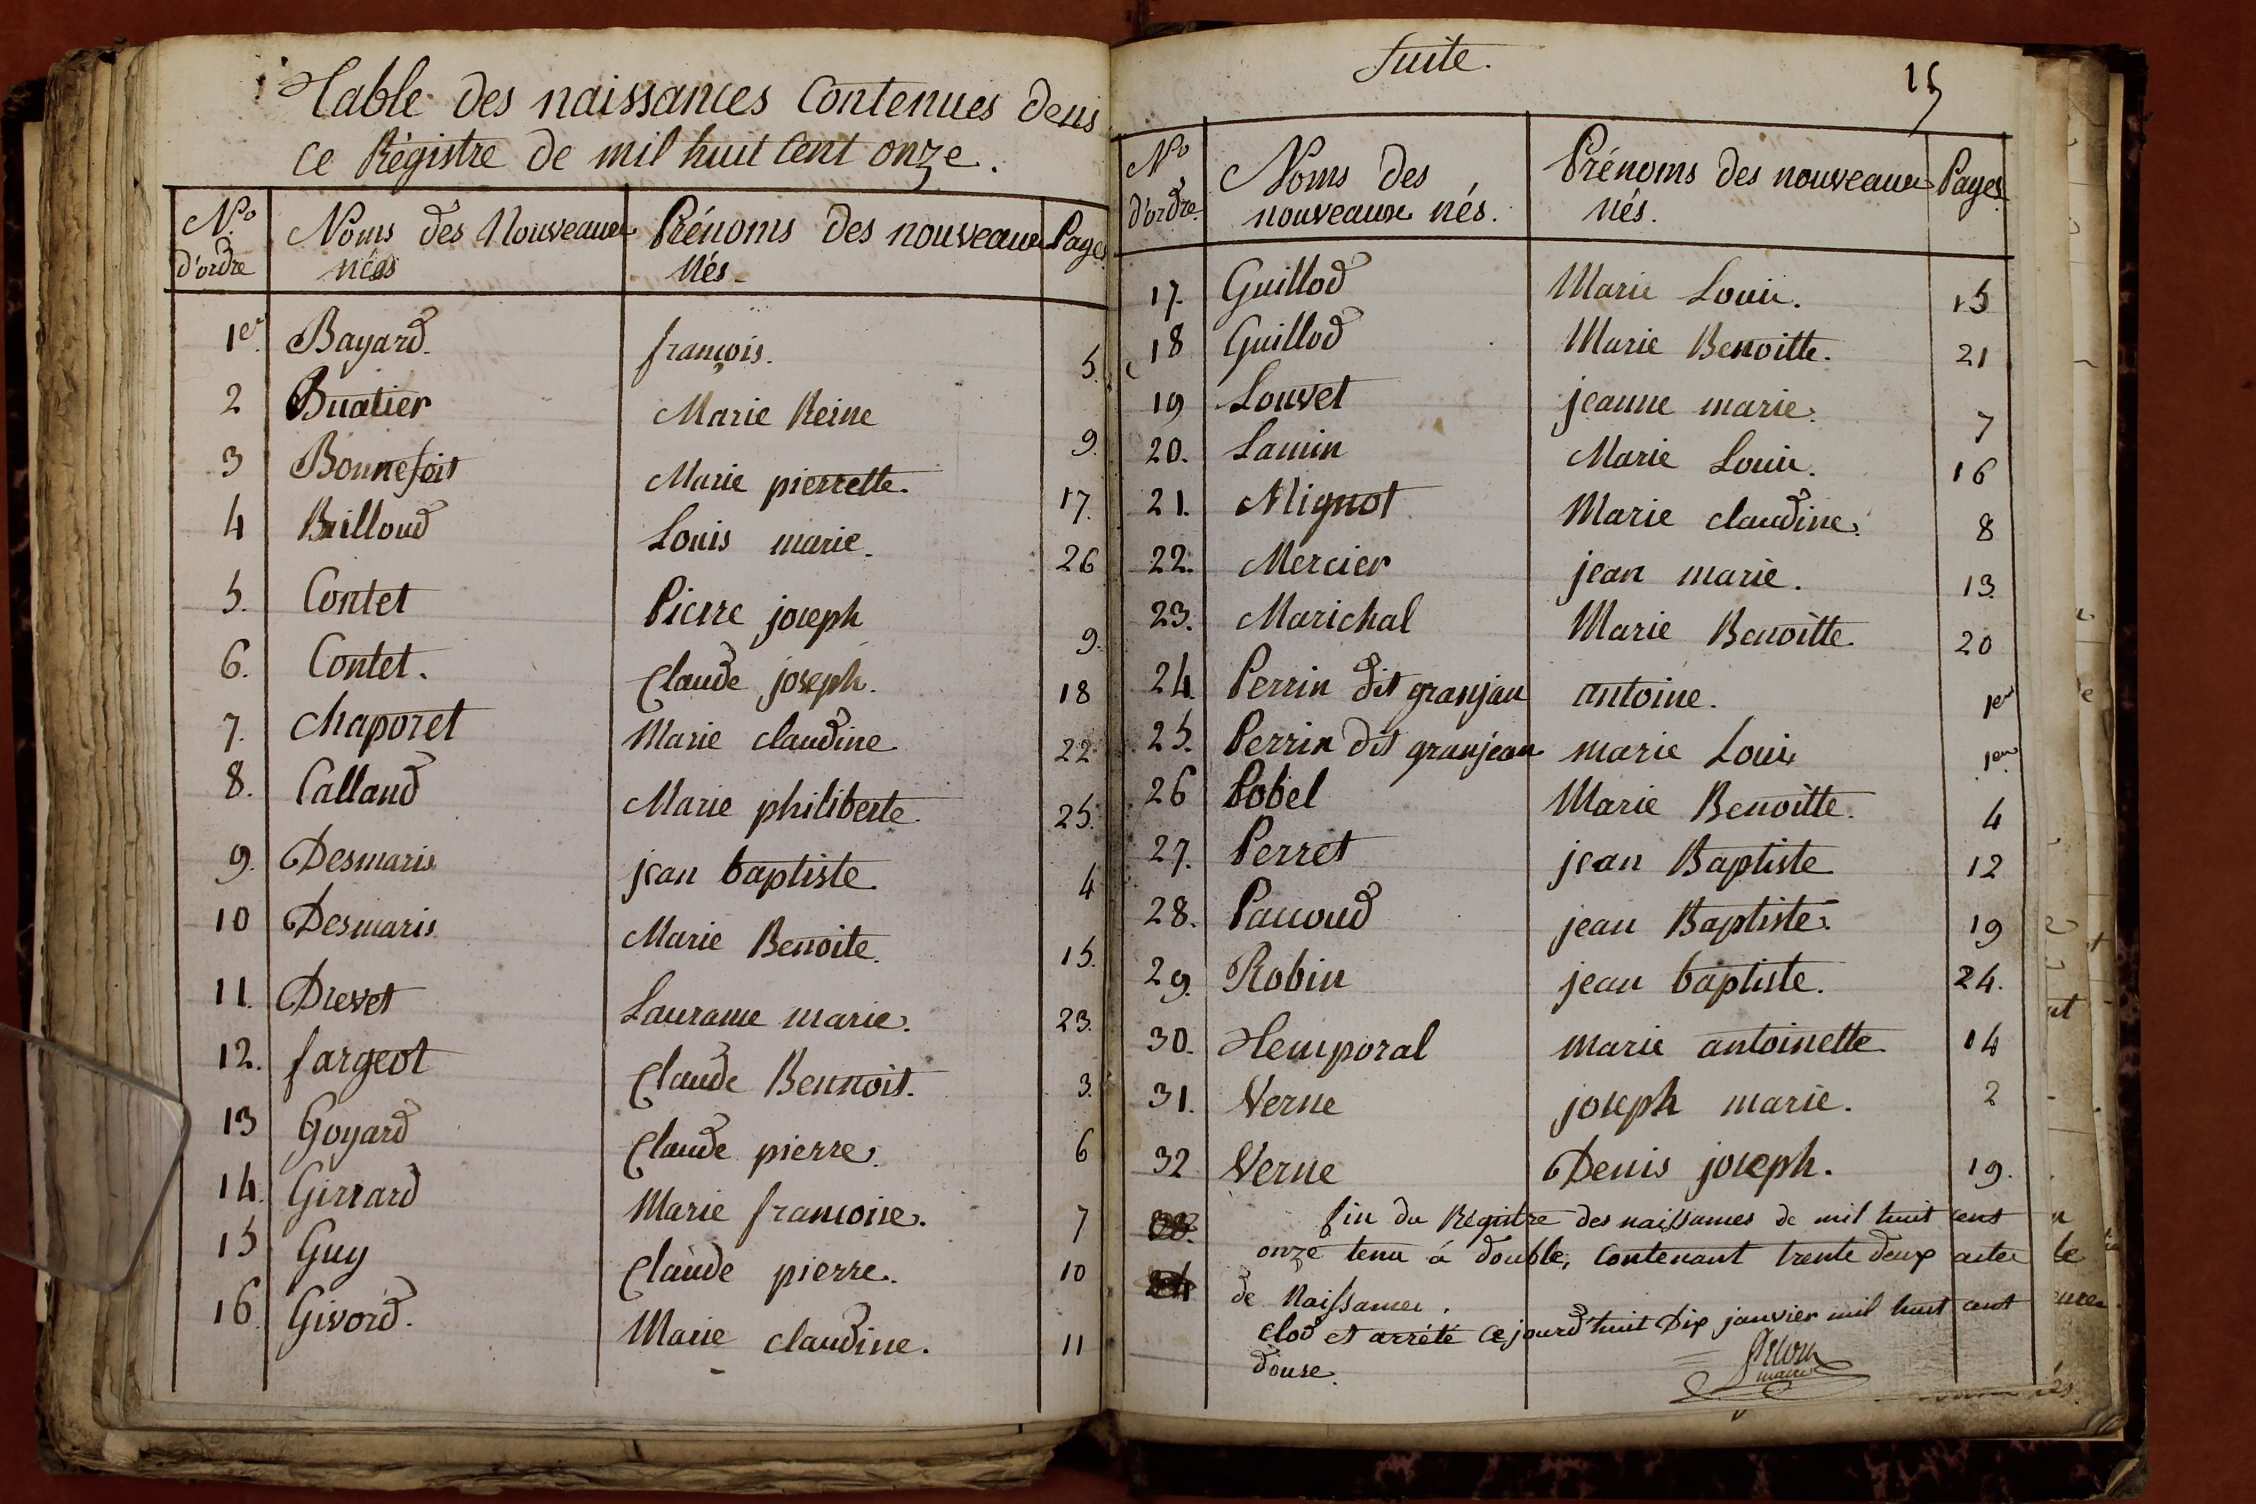 Table des naissances Contenues dens
ce Régistre de mil huit cent onze.
N.o d'ordre Noms des Nouveaux nées Prénoms des nouveaux nés Pages
1er Bayard. françois. 5.
2 Buatier Marie Reine 9.
3 Bonnefoit Marie pierrette. 17.
4 Brilloud Louis marie. 26
5. Contet Pierre joseph 9.
6. Contet. Claude joseph. 18
7. Chaporet Marie claudine 22
8. Calland Marie philiberte 25.
9. Desmaris jean baptiste 4
10 Desmaris Marie Benoite. 15.
11. Drevet marie. 23.
12. fargeot Claude Bennoit. 3.
13 Goyard Claude pierre. 6
14. Girrard Marie francoise. 7
15 Guy Claude pierre. 10
16. Givord. Marie claudine. 11
Suite.
15
No d'ordre. Noms des nouveaux nés. Prénoms des nouveaux nés. Pages
17. Guillod Marie Louise. 15
18 Guillod Marie Benoitte. 21
19 Louvet jeanne marie. 7
20. Lamin Marie Louise. 16
21. Mignot Marie claudine. 8
22. Mercier jean marie. 13.
23. Marichal Marie Benoitte. 20
24. Perrin dit granjan antoine. 1er
25. Perrin dit granjean marie Louise 1er
26 Pobel Marie Benoitte. 4
27. Perret jean Baptiste 12
28. Pauoud jean Baptiste. 19
29. Robin jean baptiste. 24.
30. Temporal marie antoinette 14
31. Verne joseph marie. 2
32 Verne Denis joseph. 19.
fin du Régistre des naissances de mil huit cent
onze tenu à double, contenant trente deux actes
de Naissances.
clod et arrêté ce jourd'huit Dix janvier mil huit cent
douse.
maire